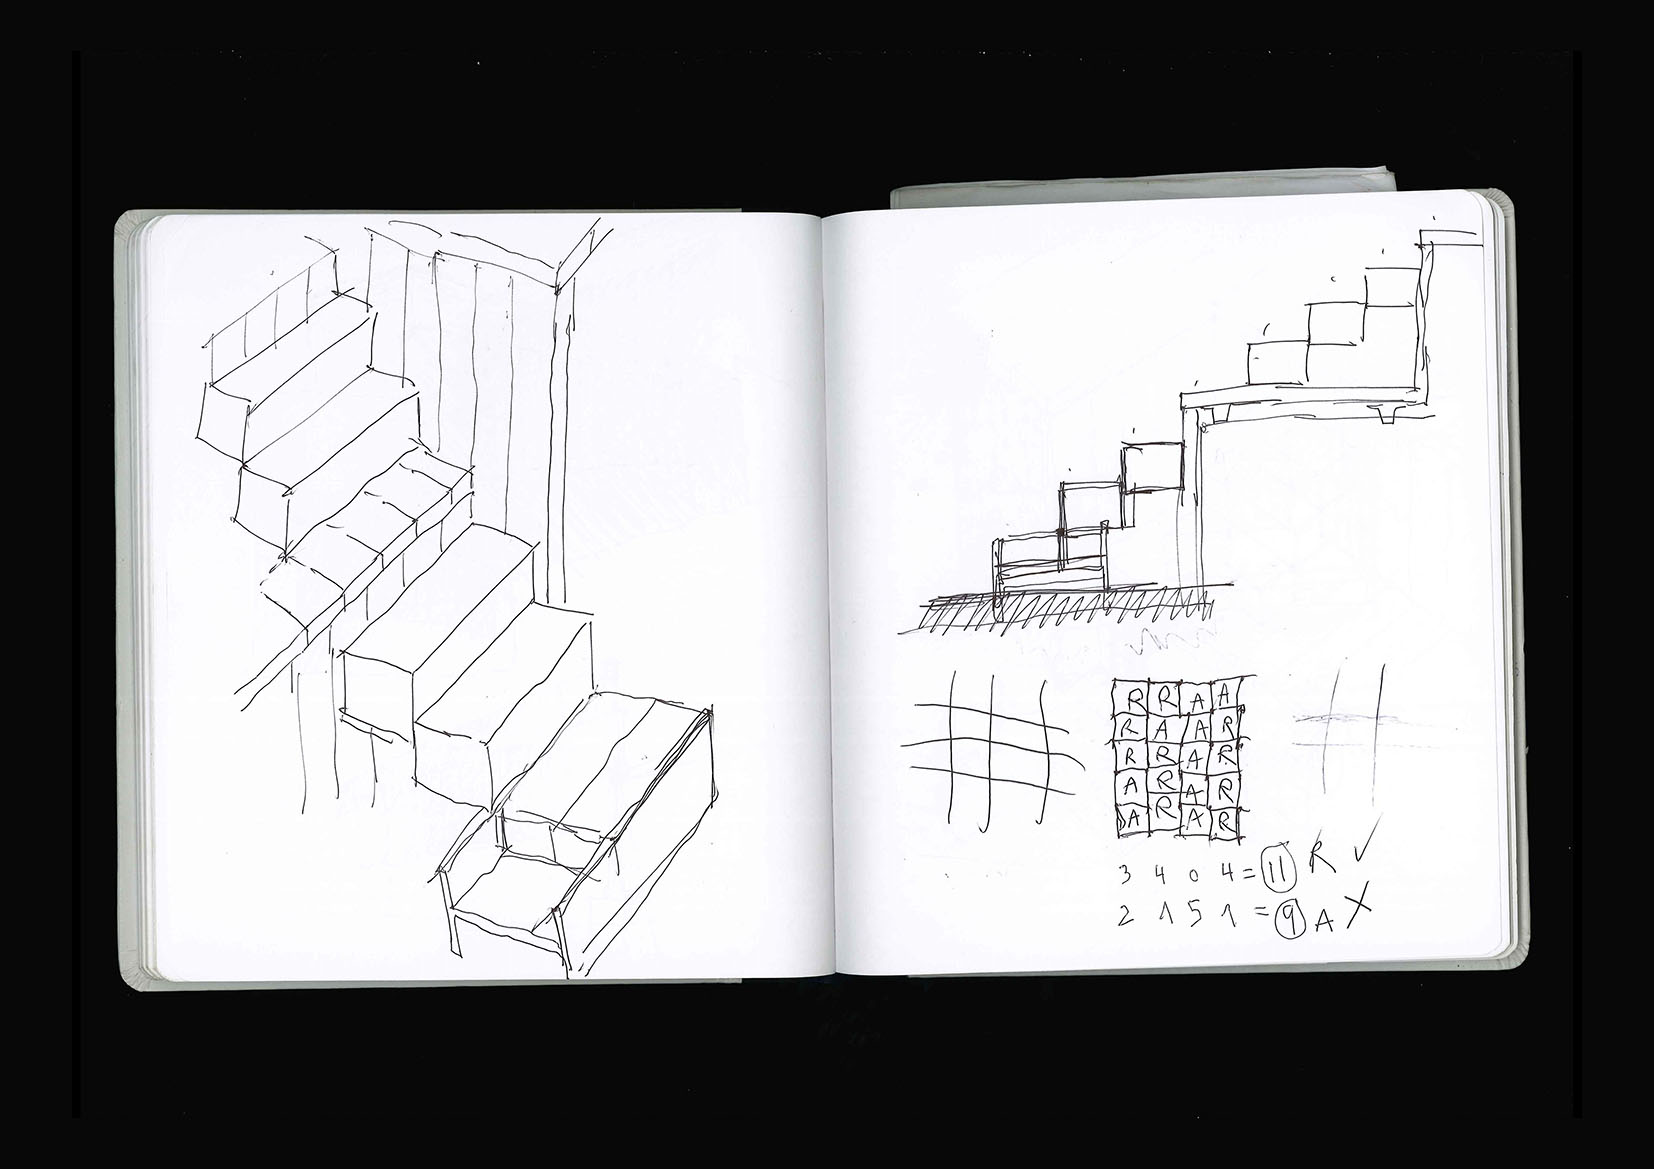 R R A A
R A A R
R R A R
A R A R
A R A R
3 4 0 4 = 11 R ✓
2 1 5 1 = 9 A X